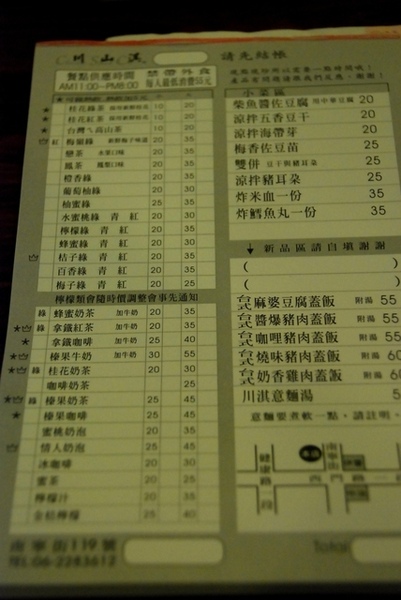 川山淇
請先結帳
餐點供應時間 禁帶外食
AM11:00~PM8:00 每人最低消費55元
小菜區
柴魚醬佐豆腐 用中華豆腐 20
涼拌五香豆干 20
涼拌海帶芽 20
梅香佐豆苗 25
雙併 豆干與豬耳朵 25
涼拌豬耳朵 25
炸米血一份 35
炸鱈魚丸一份 35
↓ 新品區請自填謝謝
(
(
台式 麻婆豆腐蓋飯 附湯 55
台式 醬爆豬肉蓋飯 附湯 55
台式 咖哩豬肉蓋飯 附湯 55
台式 燒味豬肉蓋飯 附湯 60
台式 奶香雞肉蓋飯 附湯 60
川淇意麵湯
意麵要煮軟一點,請註明。
★ 桂花綠茶 10 20
★ 桂花紅茶 10 20
★ 台灣ㄟ高山茶 10 20
紅 梅個綠 20 30
戀茶 20 35
鳳茶 20 35
橙香綠 20 35
葡萄柚綠 20 30
柚蜜綠 25 35
水蜜桃綠 青 紅 20 30
檸檬綠 青 紅 20 35
蜂蜜綠 青 紅 20 30
桔子綠 青 紅 25 35
百香綠 青 紅 20 30
梅子綠 青 紅 25 35
檸檬類會隨時價調整會事先通知
綠 蜂蜜奶茶 加牛奶 20 35
★ 綠 拿鐵紅茶 加牛奶 20 35
★ 拿鐵咖啡 加牛奶 25 40
★ 榛果牛奶 加牛奶 30 55
★ 綠 桂花奶茶 20 30
咖啡奶茶 25 35
★ 綠 榛果奶茶 25 45
★ 榛果咖啡 25 45
蜜桃奶泡 25 35
情人奶泡 25 45
冰咖啡 20 30
蜜茶 20 25
檸檬汁 25 35
金桔檸檬 25 40
南寧街119號
TEL:06-2283612
健康路
南寧街
西門路一
Total